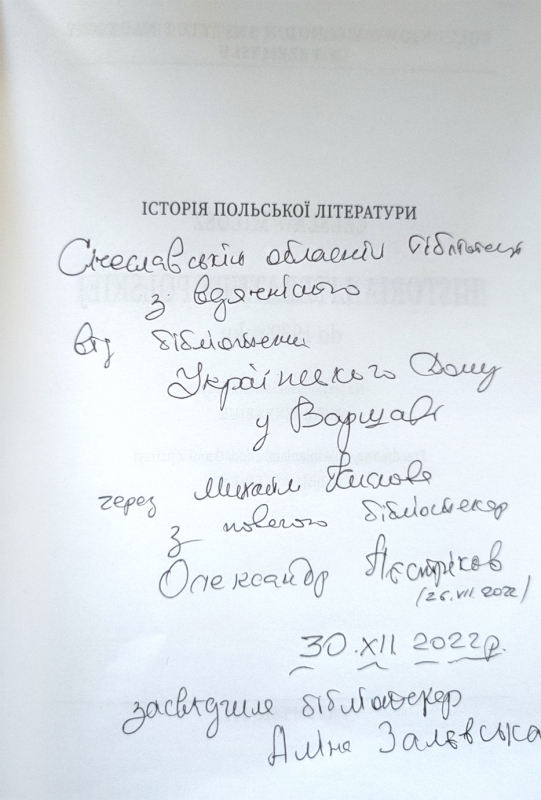 ІСТОРІЯ ПОЛЬСЬКОЇ ЛІТЕРАТУРИ
Січеславській обласній бібліотеці
з вдячністю
від бібліотеки
Українського Дому
у Варшаві
через Михайл
з повагою бібліотекар
Олександр
(26.VII 2022)
30.XII 2022р.
засвідчила бібліотекар
Аліна Залєвська